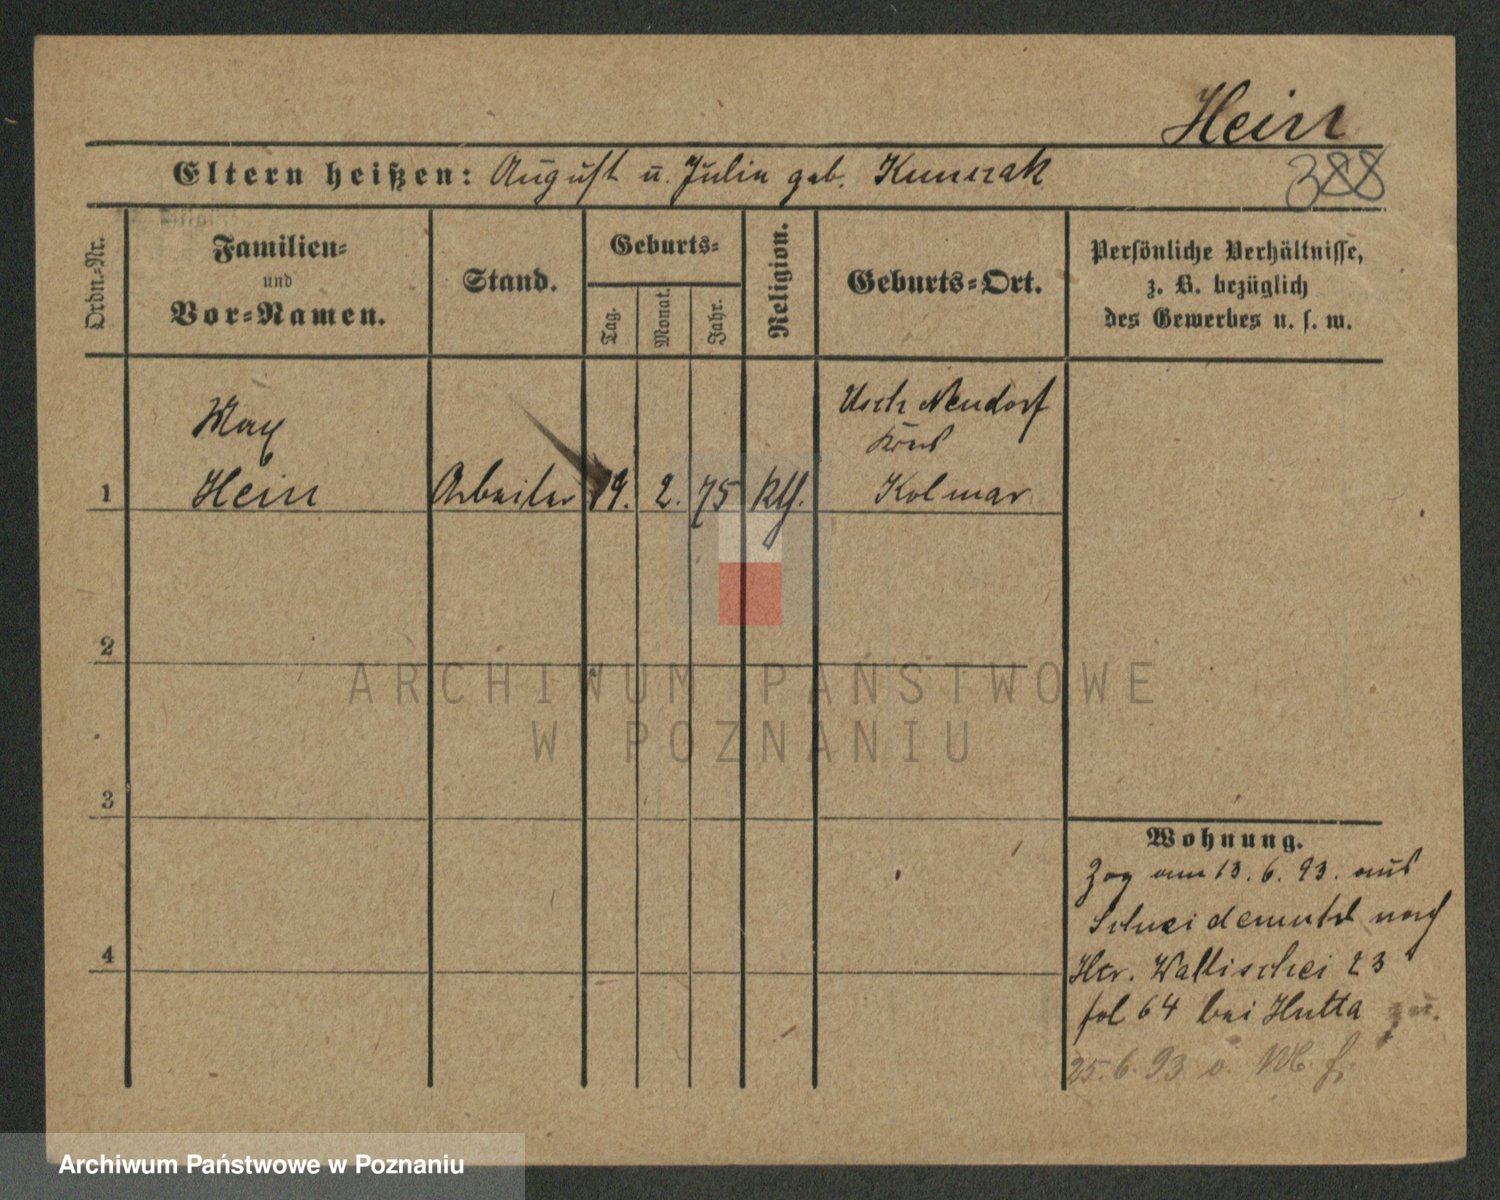 Hein
388
Eltern heißen: August u. Julia geb.
Ordn.-Nr.
Familien-
und
Vor-Namen.
Stand.
Geburts-
Tag.
Monat.
Jahr.
Religion.
Geburts-Ort.
Persönliche Verhältnisse,
z. B. bezüglich
des Gewerbes u. s. w.
Max
Usch Neudorf
Kreis
1 Hein Arbeiter 19. 2. 75 kth. Kolmar
2
3
4
Wohnung.
Zog am 13. 6. 93. aus
Schneidemühl nach
Hier. Wallischei 23
fol 64 bei Hutta zu.
25. 6. 93
ARCHIWUM PAŃSTWOWE
W POZNANIU
Archiwum Państwowe w Poznaniu